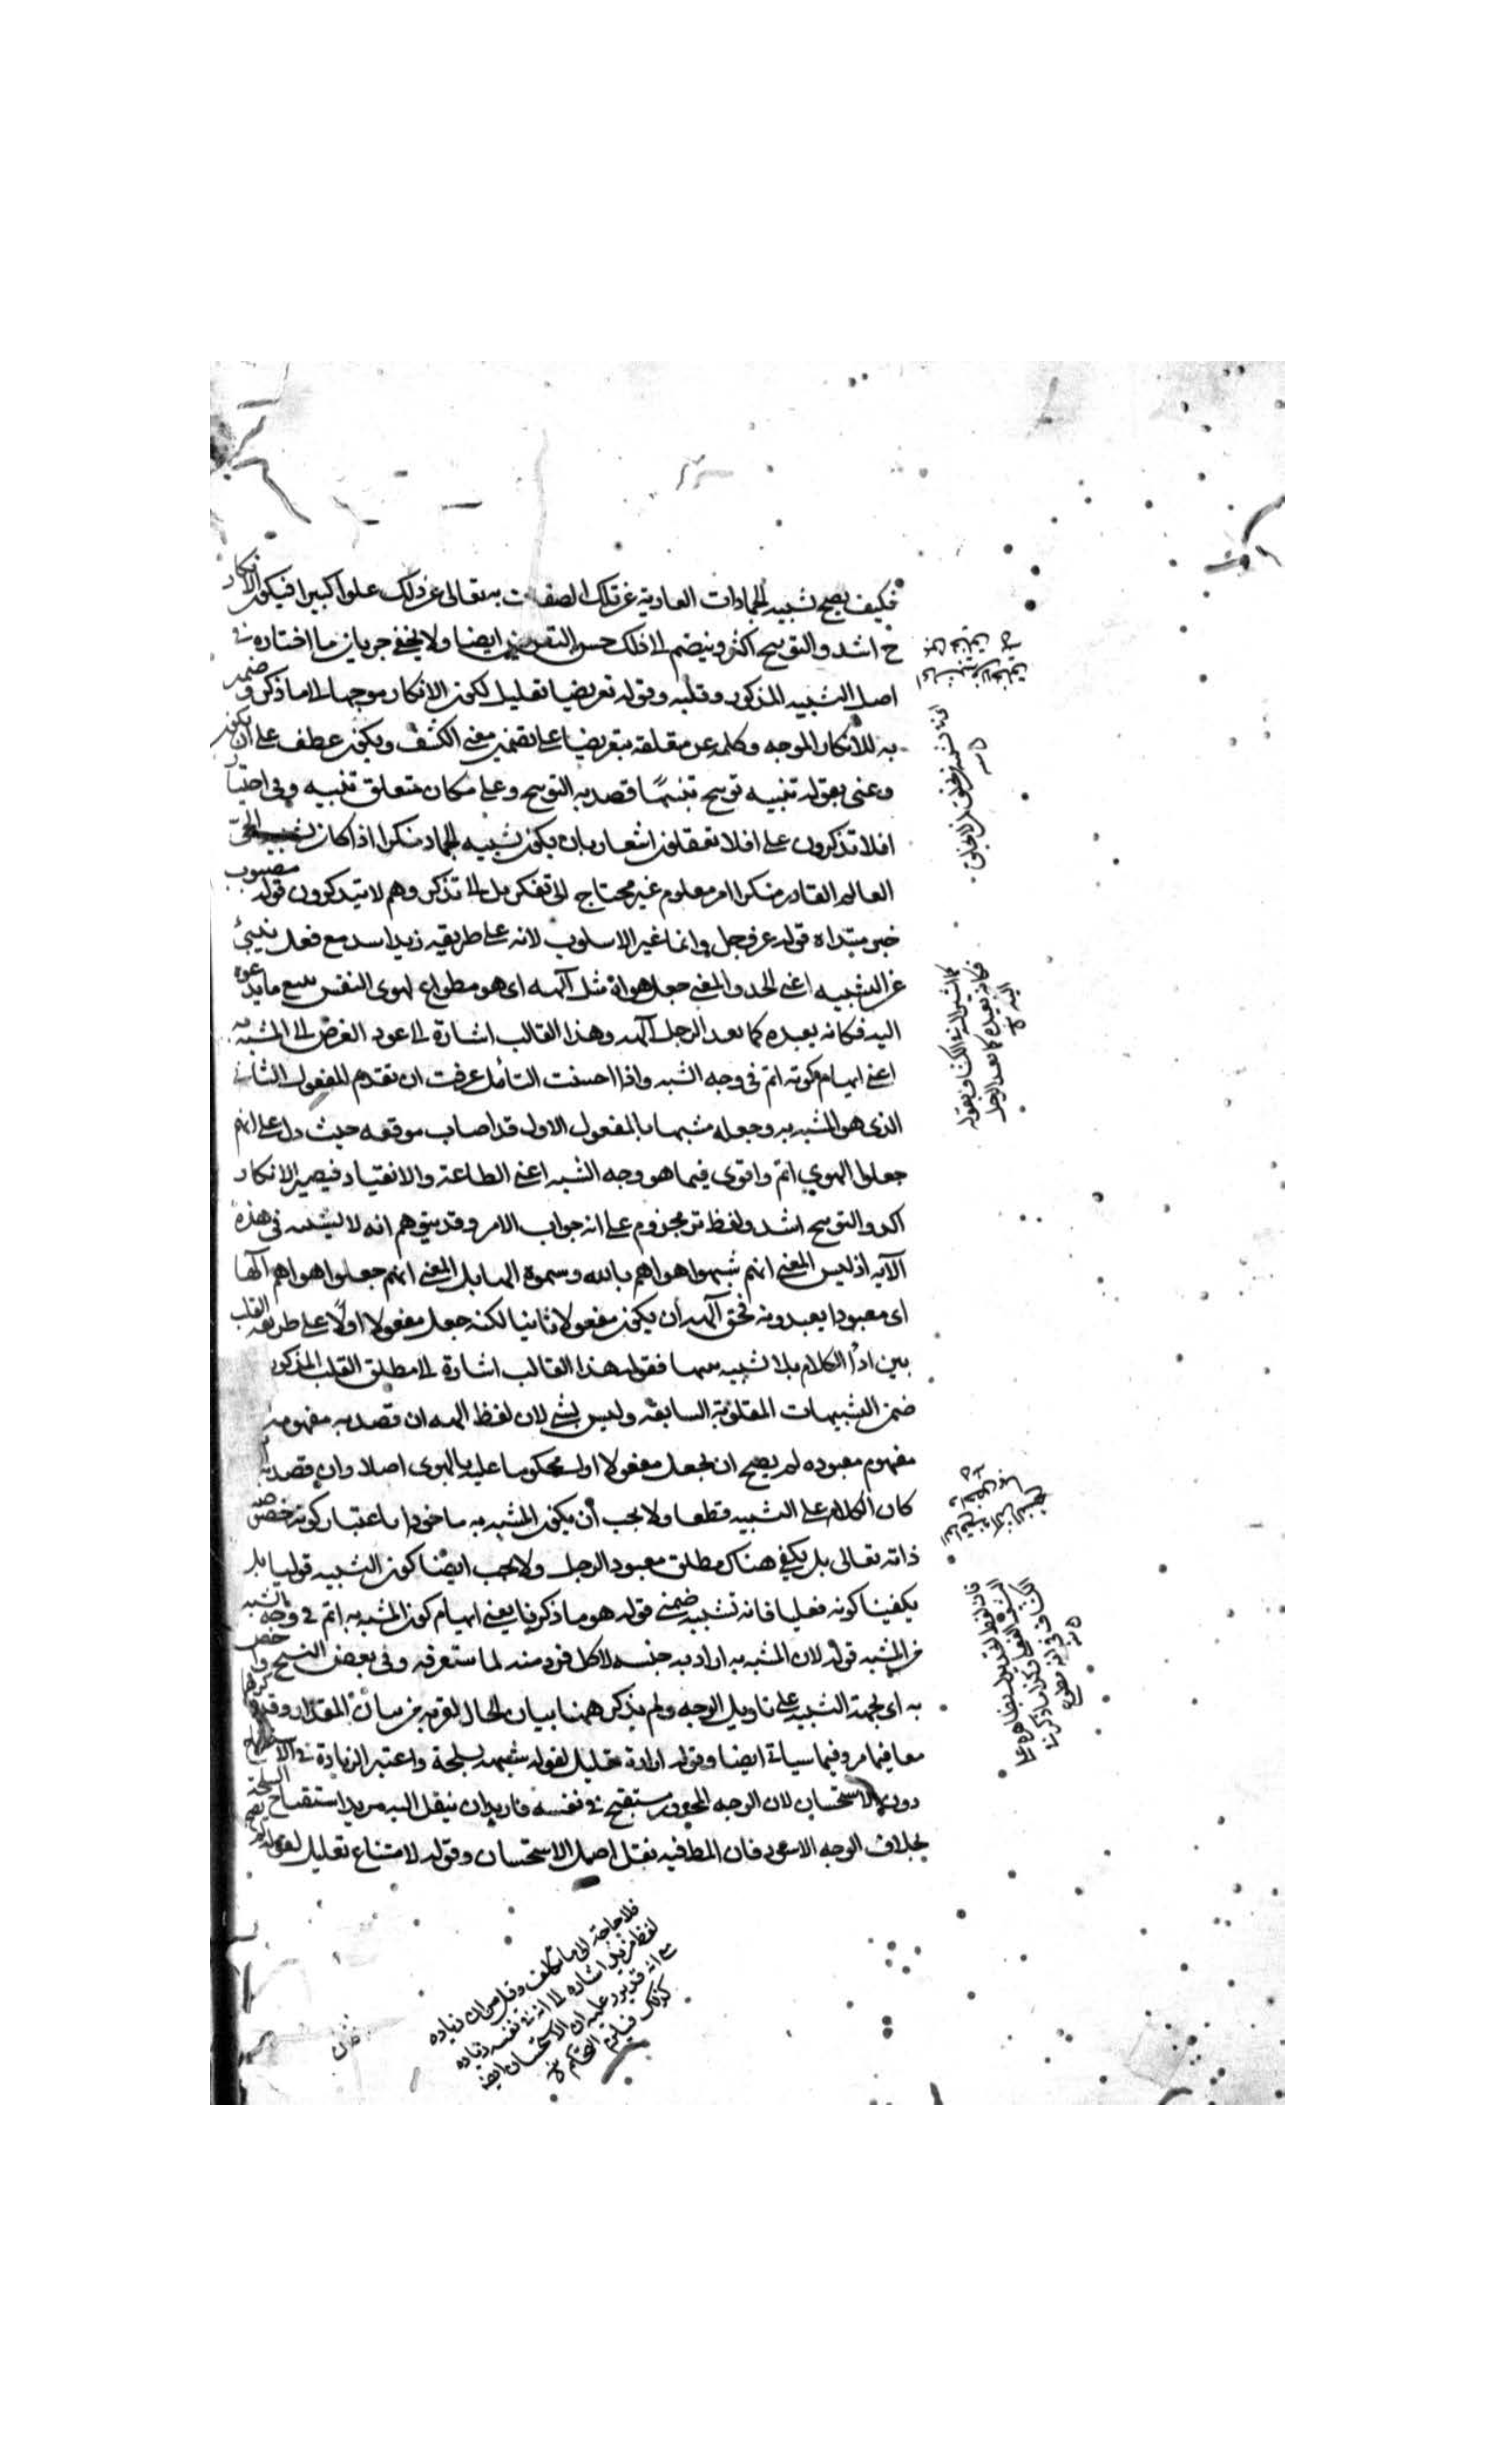 فكيف يصح تشبيه الجمادات العارية عن تلك الصفات به تعالى عن ذلك علوا كبيرا فيكون الانكار
ح اشد والتوبيح اكثر وينضم الى ذلك حسن التعريض ايضا ولا يخفى جريان ما اختاره في
اصل التشبيه المذكور وقلبه وقوله تعريضا تعليل لكون الانكار موجها الى ما ذكر و ضمير
به للانكار الموجه وكلمة عن متعلقة بتعريضا على تضمين معنى الكشف ويكون عطف على ان يكون
وعنى بقوله تنبيه توبيح تنبيها قصد به التوبيح وعلى مكان متعلق تنبيه وفي اختيار
افلا تذكرون على افلا تعقلون اشعار بان يكون تشبيه الجماد منكرا اذا كان تشبيه الحى
العالم القادر منكرا امر معلوم غير محتاج الى تفكر بل الى تذكر وهم لا يتذكرون قوله مصبوب
خبر مبتداه قوله عز وجل وانما غير الاسلوب لانه على طريقة زيد اسد مع فعل ينبئ
عن التشبيه اعني الحد والمعنى جعل هواه مثل آلهه اى هو مطواع لهوى النفس يتبع ما يدعوه
اليه فكانه يعبده كما يعبد الرجل آلهه وهذا القالب اشارة الى عود الغرض الى المشبه به
اعنى ايهام كونه اتم في وجه الشبه واذا احسنت التأمل عرفت ان تقديم المفعول الثاني
الذى هو المشبه به وجعله مشبها بالمفعول الاول قد اصاب موقعه حيث دل على انهم
جعلوا الهوى اتم واقوى فيما هو وجه الشبه اعنى الطاعة والانقياد فيصير الانكار
اكد والتوبيح اشد ولفظ تر مجزوم على انه جواب الامر وقد يتوهم انه لا تشبيه في هذه
الآية اذ ليس المعنى انهم شبهوا اهواهم بالله وسموه الها بل المعنى انهم جعلوا اهواهم آلها
اى معبودا يعبدونه فحق آلهه ان يكون مفعولا ثانيا لكنه جعل مفعولا اولا على طريقة القلب
بين اجزاء الكلام بلا تشبيه بينهما فقوله هذا القالب اشارة الى مطلق القلب المذكور
ضمن التشبيهات المقلوبة السابقة وليس بشئ لان لفظ الهه ان قصد به مفهومه
مفهوم معبوده لم يصح ان يجعل مفعولا اول محكوما عليه بالهوى اصلا وان قصد به
كان الكلام على التشبيه قطعا ولا يجب أن يكون المشبه به ماخوذا باعتبار كونه خصوصية
ذاته تعالى بل يكفى هناك مطلق معبود الرجل ولا يجب ايضا كون التشبيه قوليا بل
يكفينا كونه فعليا فانه تشبيه ضمني قوله هو ما ذكرنا يعنى ايهام كون المشبه به اتم في وجه الشبه
من المشبه قوله لان المشبه به اراد به جنسه لا كل فرد منه لما ستعرفه وفى بعض النسخ واخص
به اى لجهة التشبيه على تاويل الوجه ولم يذكر ههنا بيان الحال لقربه من بيان المقدار
معا فيما مر وفيما سياتى ايضا وقوله ارادة تعليل لقوله شبهه بسلحة واعتبر الزيادة في الاستقباح
دون الاستحسان لان الوجه المجدور مستقبح في نفسه فاريد ان ينقل اليه مزيد استقباح السلحة
بخلاف الوجه الاسود فان المط فيه نقل اصل الاستحسان وقوله لامتناع تعليل لقوله
كما اشير اليه في الكشاف بقوله
فكانه يعبده كما يعبد الرجل
الهه
فلا حاجة الى ما تكلف وقيل من ان زياده
لفظ مزيد اشاره الى انه في نفسه زياده
مع انه قد يورد عليه ان الاستحسان ايضا
كذلك فيلزم التحكم